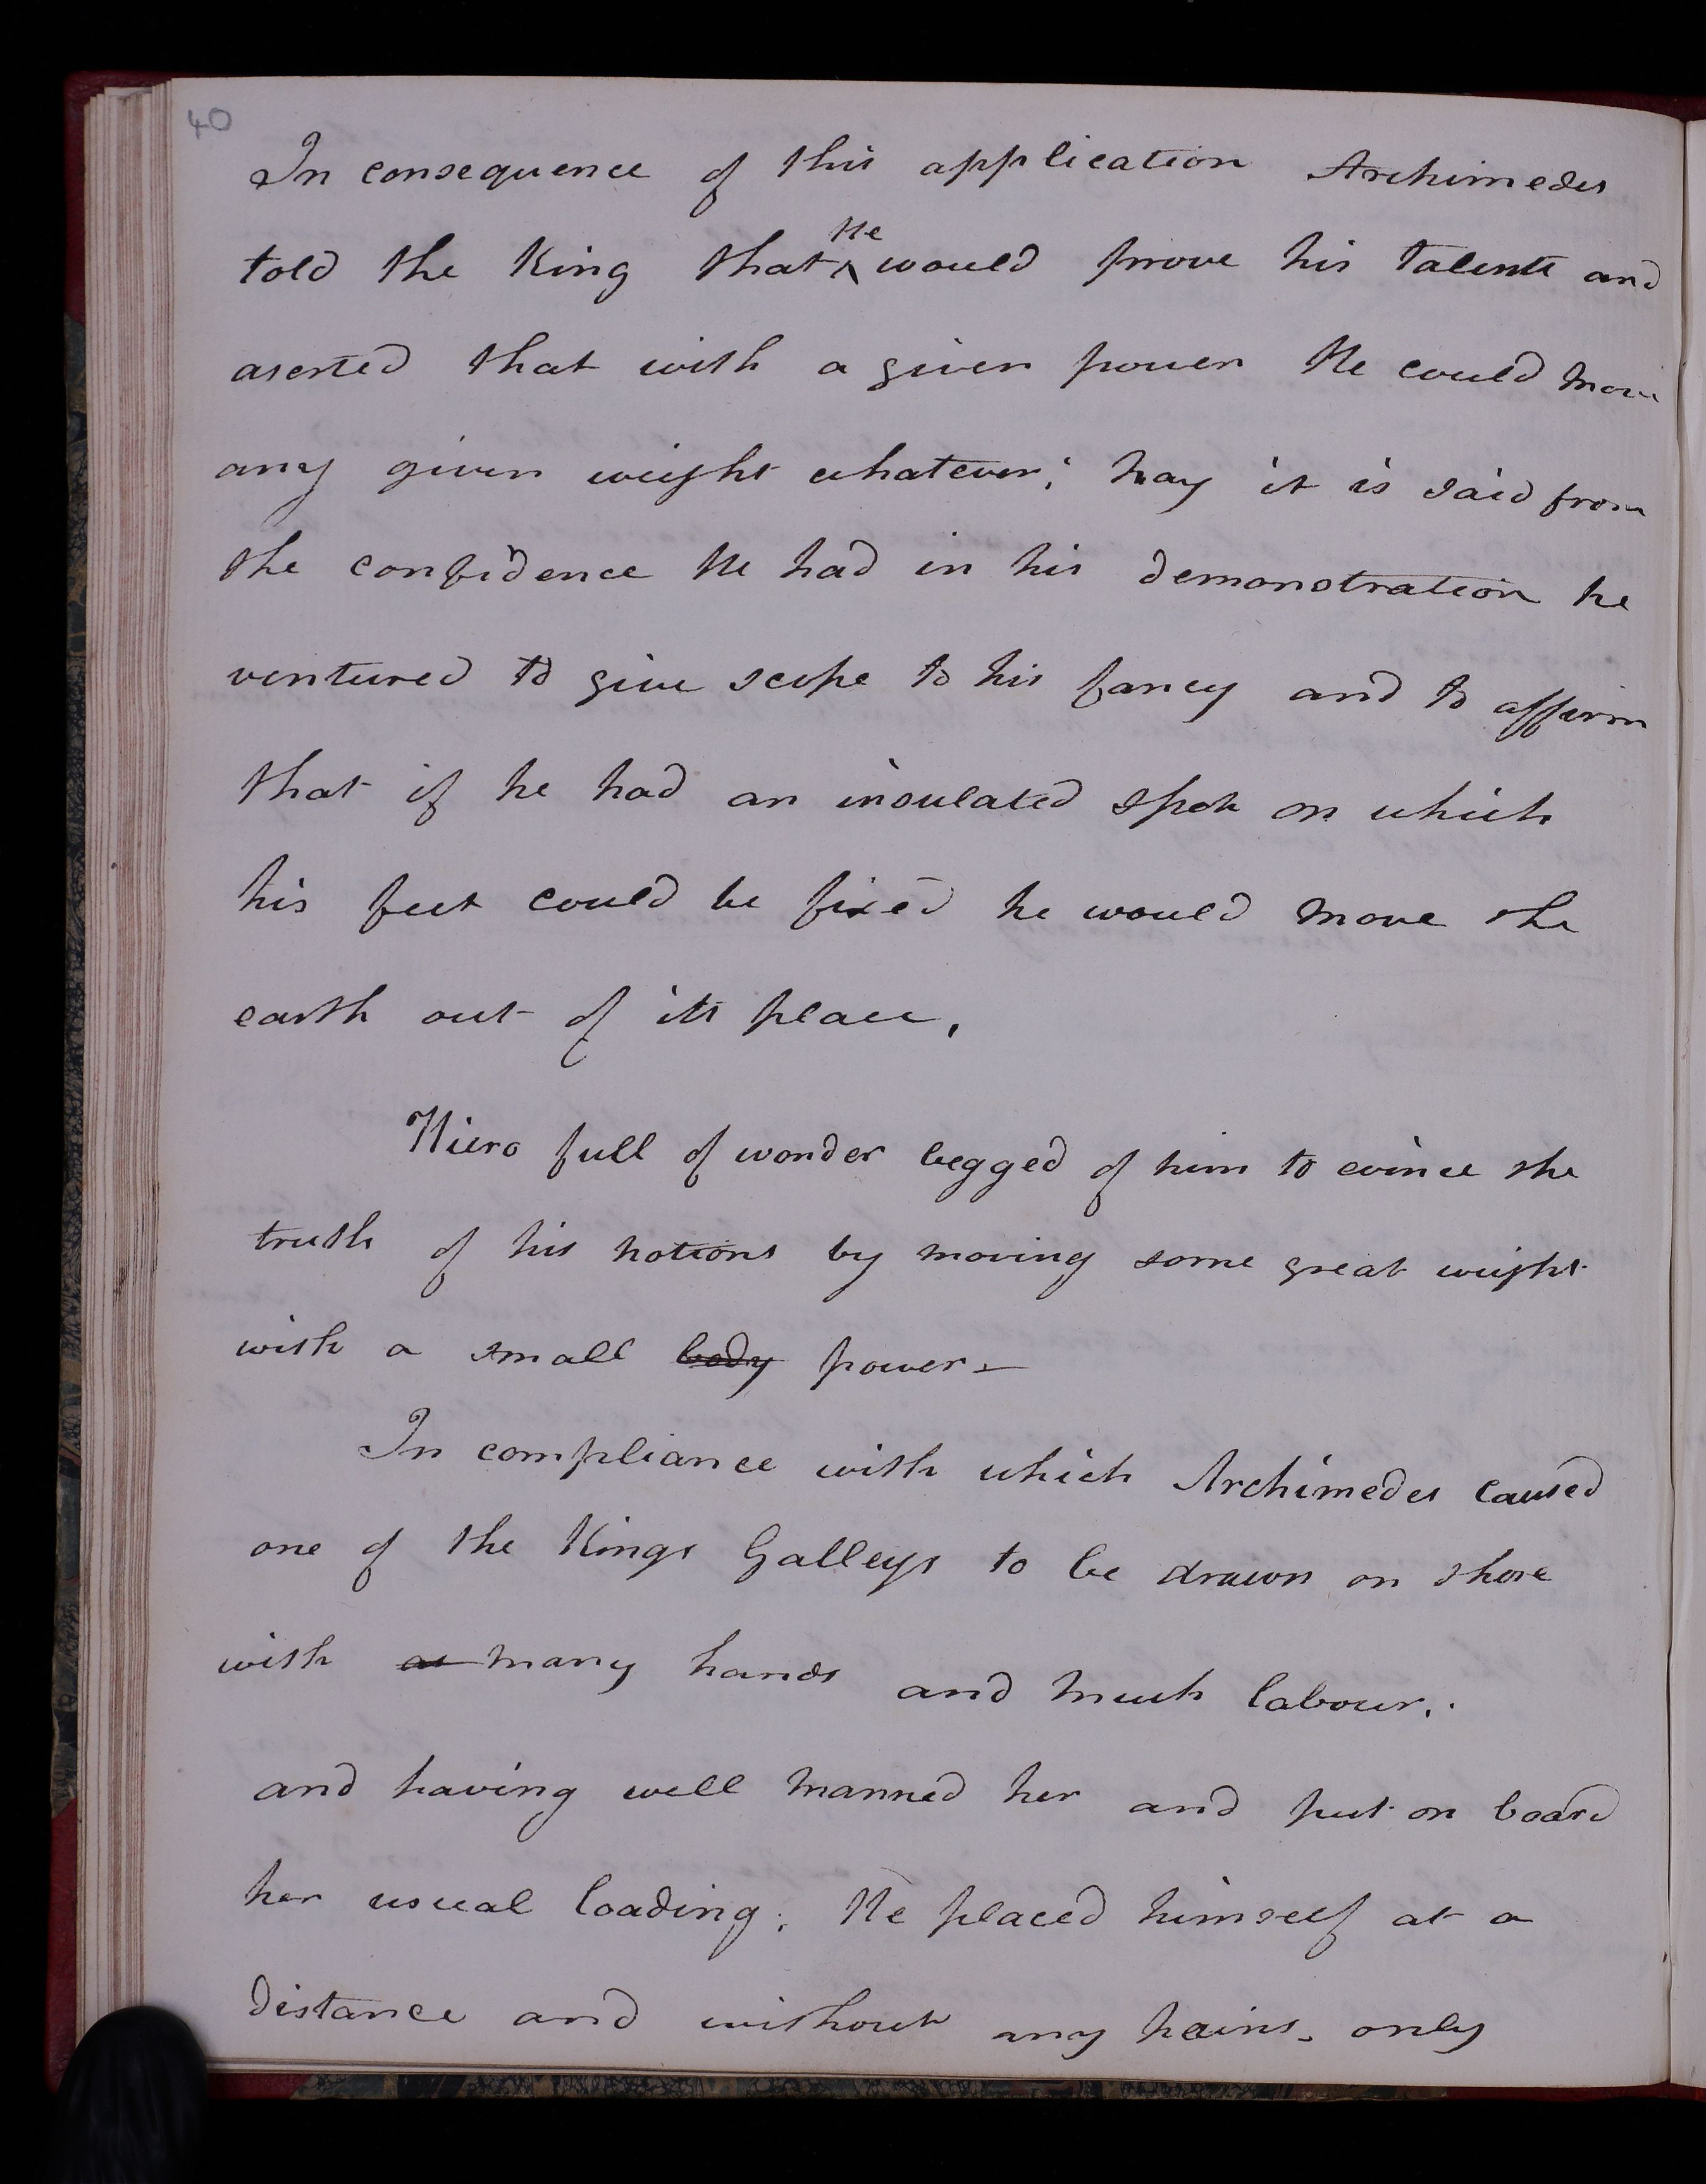 40
In consequence of this application Archimedes
He
told the King that ^ would prove his talents and
aserted that with a given power He could move
any given weight whatever; nay it is said from
the confidence He had in his demonstration he
ventured to give scope to his fancy and to affirm
that if he had an insulated spot on which
his feet could be fixed he would move the
earth out of its place,
Hiero full of wonder begged of him to evince the
truth of his notions by moving some great weight
with a small body power —
In compliance with which Archimedes caused
one of the Kings Galleys to be drawn on shore
with as many hands and much labour,.
and having well manned her and put on board
her usual loading; He placed himself at a
distance and without any pains. only